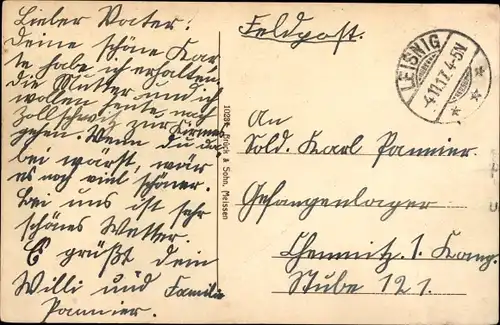 Lieber Vater!
Deine schöne Kar
te habe ich erhalten,
die Mutter und ich
wolen heute nach
Zollschwitz zur Kirmes
gehen. Wenn du da
bei warst, wär
es noch viel schöner.
Bei uns ist sehr
schönes Wetter.
Es grüßt dein
Willi und Familie
Pannier.
10286 Brück & Sohn, Meissen
Feldpost.
LEISNIG
4.11.17. 4-5N
An
Sold. Karl Pannier.
Gefangenlager
Chemnitz. 1. Komp.
Stube 121.